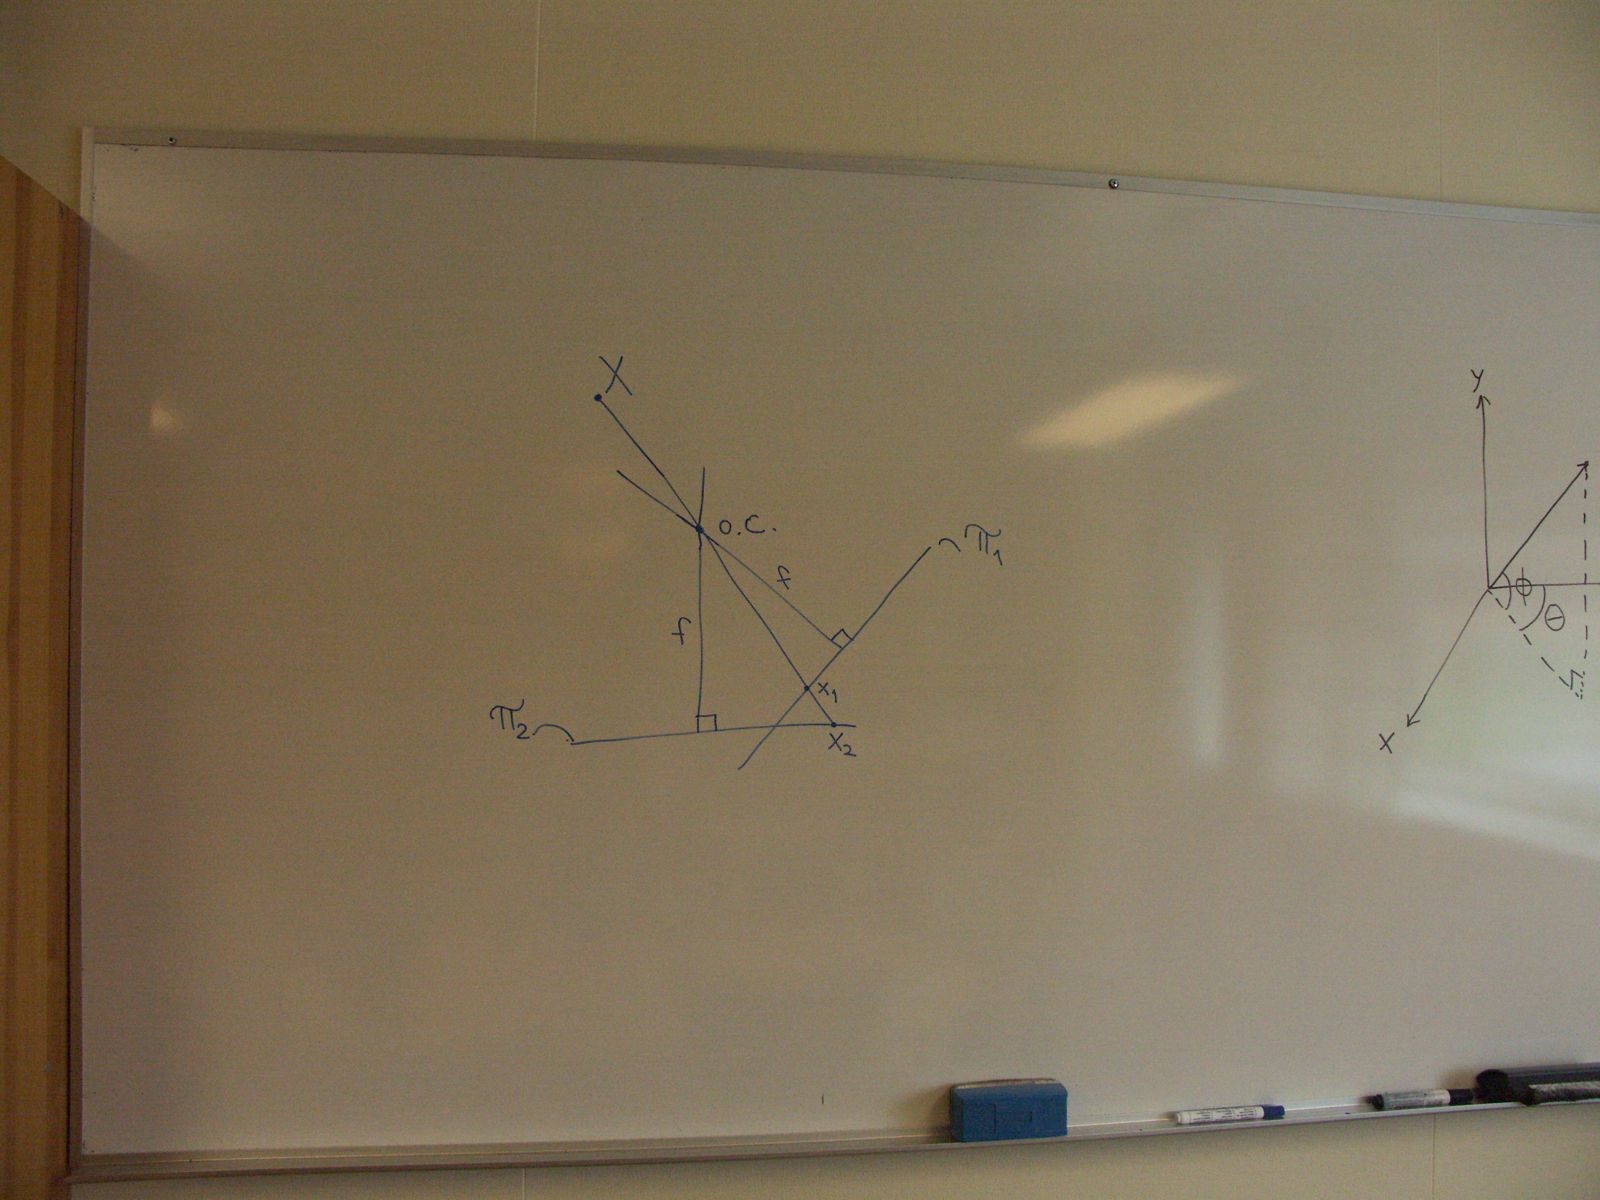 X
O.C.
f
π₁
f
x₁
π₂
x₂
y
ϕ
θ
x